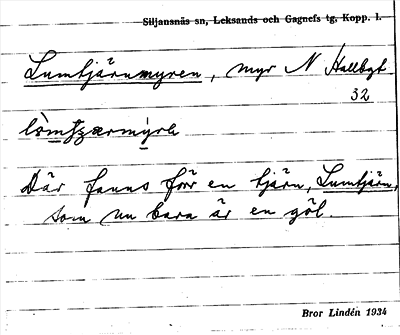 Siljansnäs sn, Leksands och Gagnefs tg, Kopp. l.
Lumtjärnmyren, myr N Hallbgt
32
lòmt̬ʒærmy̆rɐ
Där fanns förr en tjärn, Lumtjärn,
som nu bara är en göl.
Bror Lindén 1934